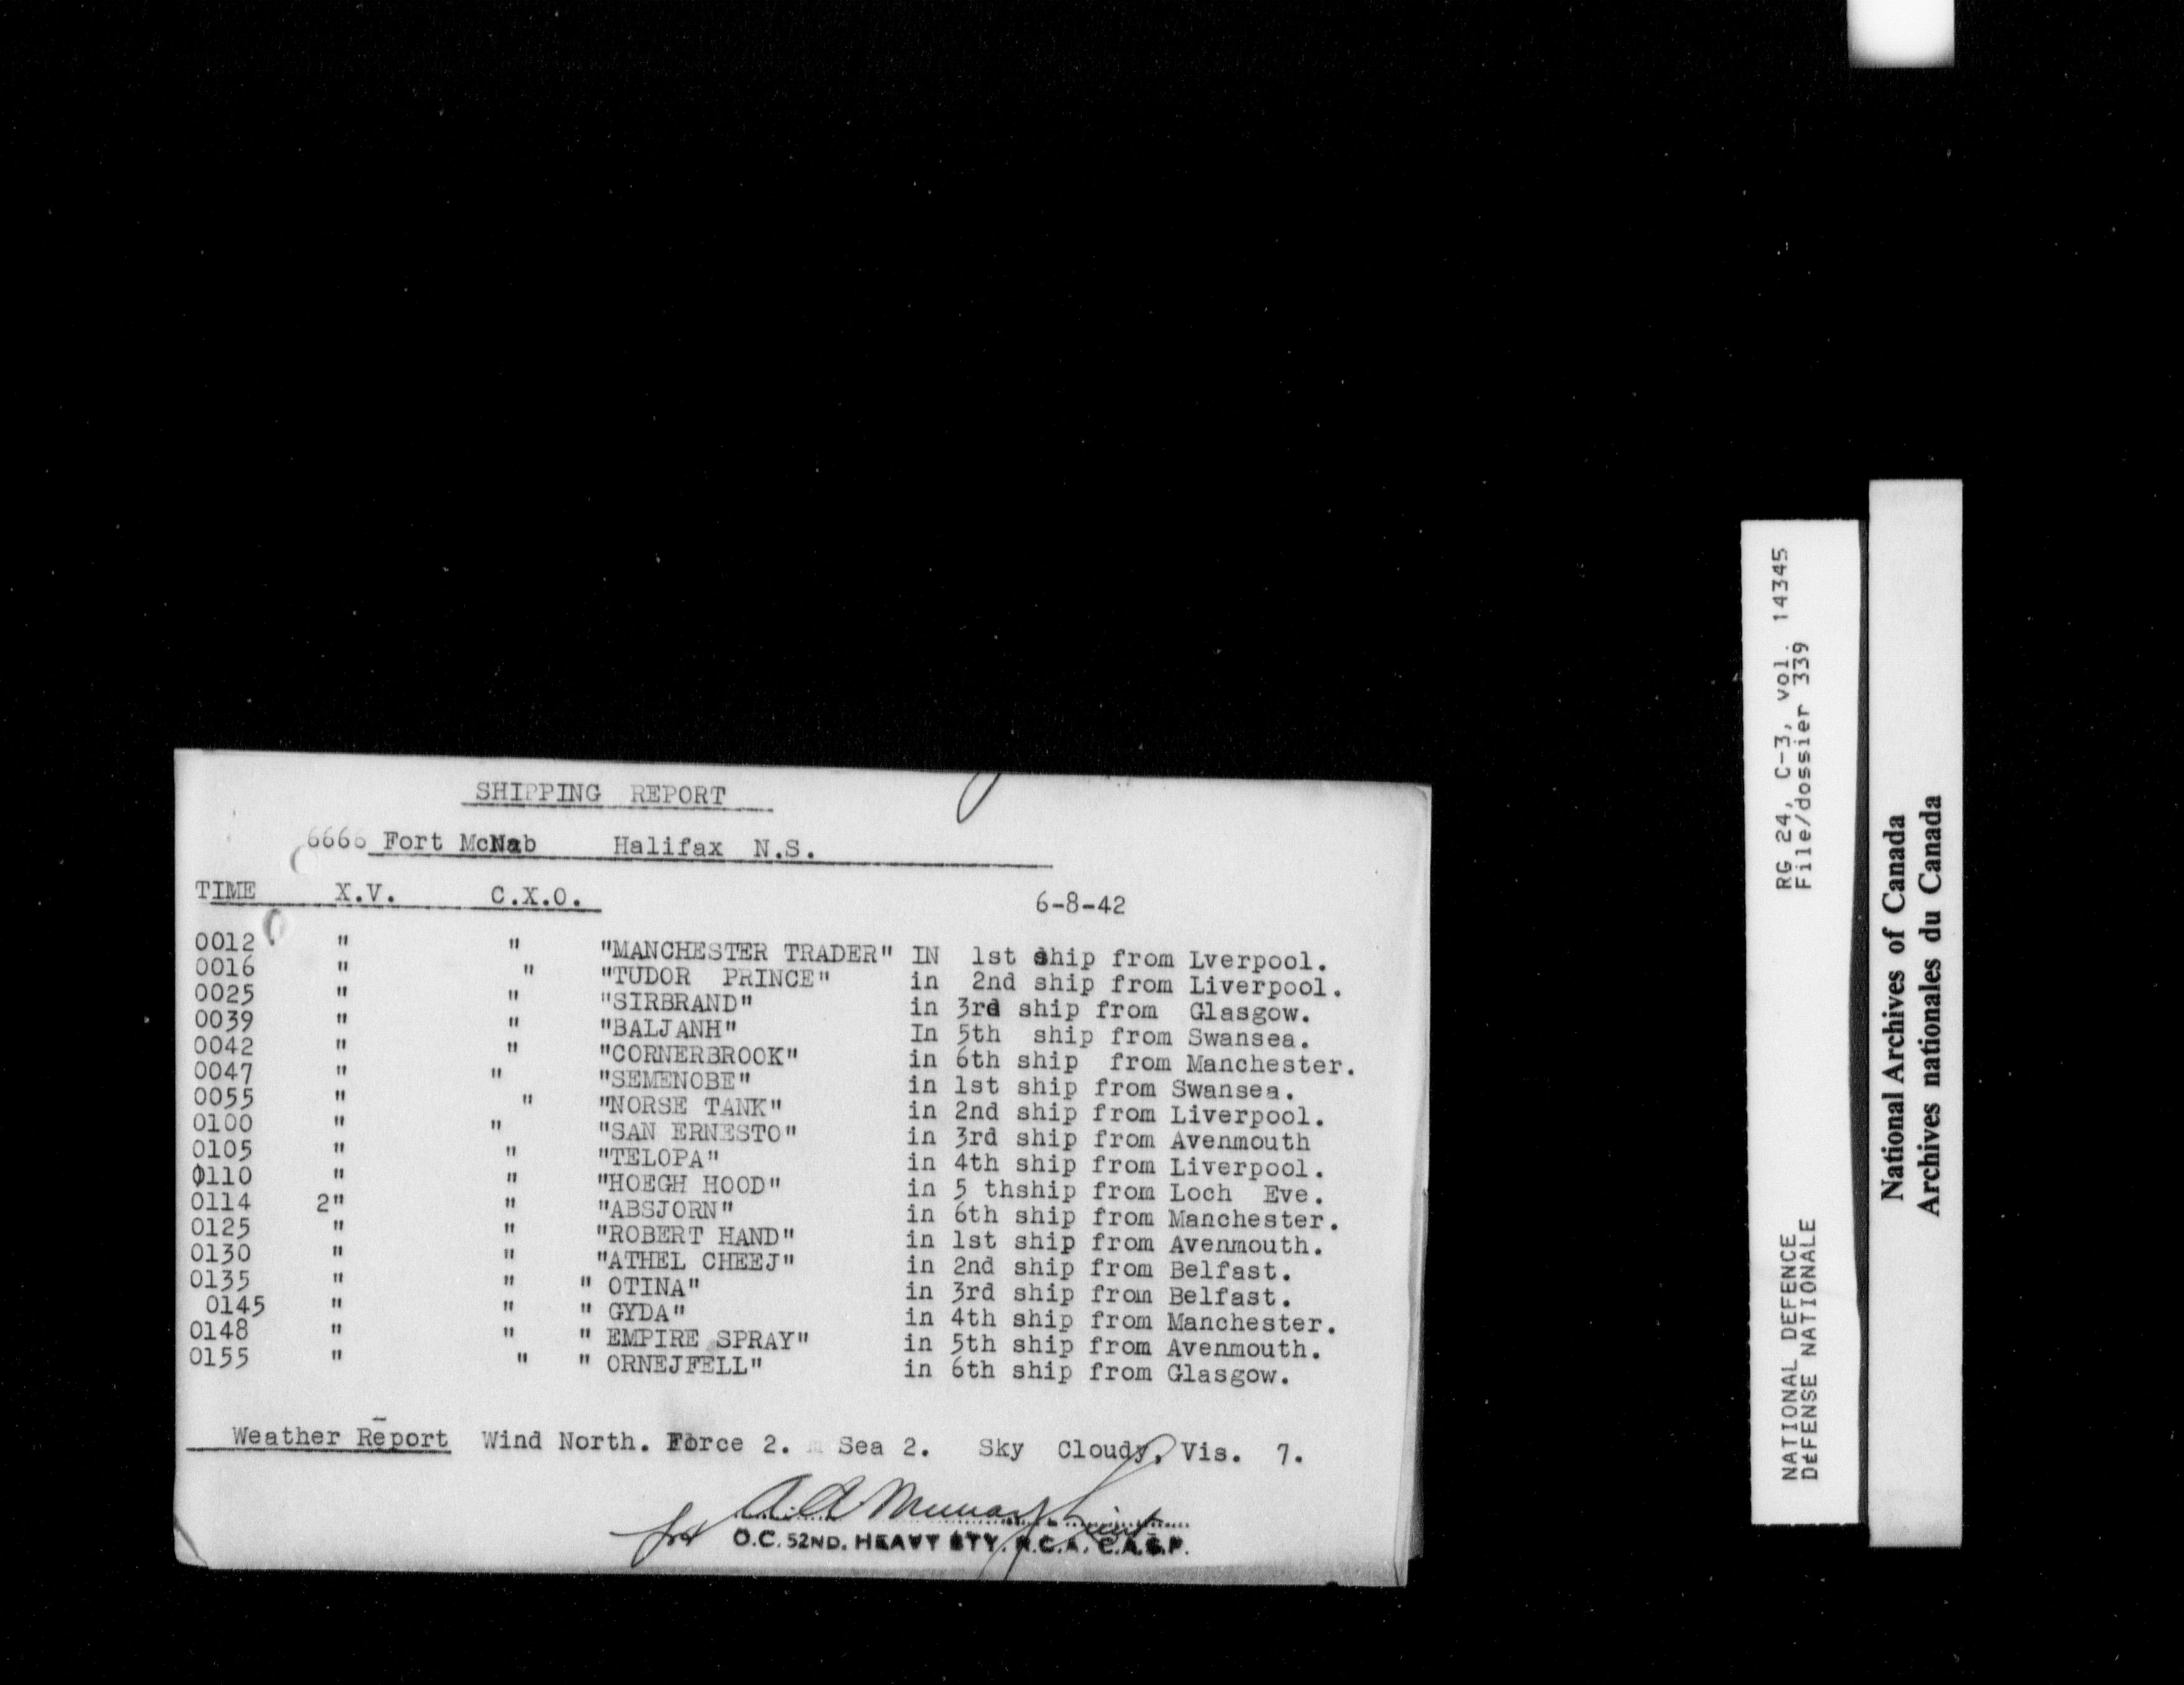 SHIPPING REPORT
6666 Fort McNab Halifax N.S.
TIME X.V. C.X.O. 6-8-42
0012 " " "MANCHESTER TRADER" IN 1st ship from Lverpool.
0016 " " "TUDOR PRINCE" in 2nd ship from Liverpool.
0025 " " "SIRBRAND" in 3rd ship from Glasgow.
0039 " " "BALJANH" In 5th ship from Swansea.
0042 " " "CORNERBROOK" in 6th ship from Manchester.
0047 " " "SEMENOBE" in 1st ship from Swansea.
0055 " " "NORSE TANK" in 2nd ship from Liverpool.
0100 " " "SAN ERNESTO" in 3rd ship from Avenmouth
0105 " " "TELOPA" in 4th ship from Liverpool.
0110 " " "HOEGH HOOD" in 5 thship from Loch Eve.
0114 2" " "ABSJORN" in 6th ship from Manchester.
0125 " " "ROBERT HAND" in 1st ship from Avenmouth.
0130 " " "ATHEL CHEEJ" in 2nd ship from Belfast.
0135 " " " OTINA" in 3rd ship from Belfast.
0145 " " " GYDA" in 4th ship from Manchester.
0148 " " " EMPIRE SPRAY" in 5th ship from Avenmouth.
0155 " " " ORNEJFELL" in 6th ship from Glasgow.
Weather Report Wind North. Force 2. Sea 2. Sky Cloudy. Vis. 7.
for A.A. Murray Lieut
O.C. 52ND. HEAVY BTY. R.C.A. C.A.S.F.
RG 24, C-3, vol. 14345
File/dossier 339
NATIONAL DEFENCE
DéFENSE NATIONALE
National Archives of Canada
Archives nationales du Canada